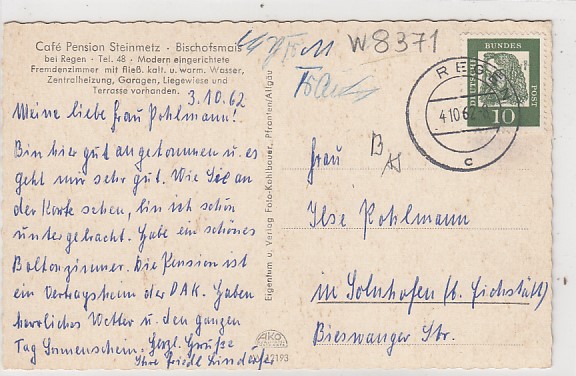 Café Pension Steinmetz · Bischofsmais
bei Regen · Tel. 48 · Modern eingerichtete
Fremdenzimmer mit fließ. kalt. u. warm. Wasser,
Zentralheizung, Garagen, Liegewiese und
Terrasse vorhanden.
3.10.62
Meine liebe Frau Pohlmann!
Bin hier gut angekommen u. es
geht mir sehr gut. Wie Sie an
der Karte sehen, bin ich schön
untergebracht. Habe ein schönes
Balkonzimmer. Die Pension ist
ein Vertragsheim der DAK. Haben
herrliches Wetter u. den ganzen
Tag Sonnenschein. Herzl. Grüße
Ihre Friedl Lindörfer
Eigentum u. Verlag Foto-Kohlbauer, Pfronten/Allgäu
AKO
W8371
DEUTSCHE BUNDES POST
10
REGEN
4.10.62
c
Frau
Ilse Pohlmann
in Solnhofen (b. Eichstätt)
Bieswanger Str.